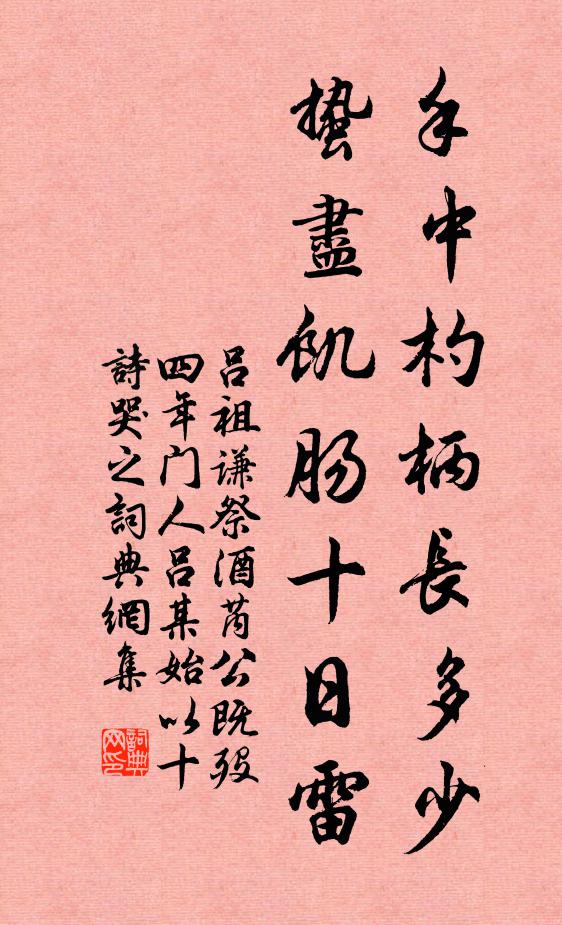 手中杓柄長多少
蛰盡飢腸十日雷
呂祖谦祭酒芮公既殁
四年门人呂某始以十
詩哭之詞典網集
詞典
网印